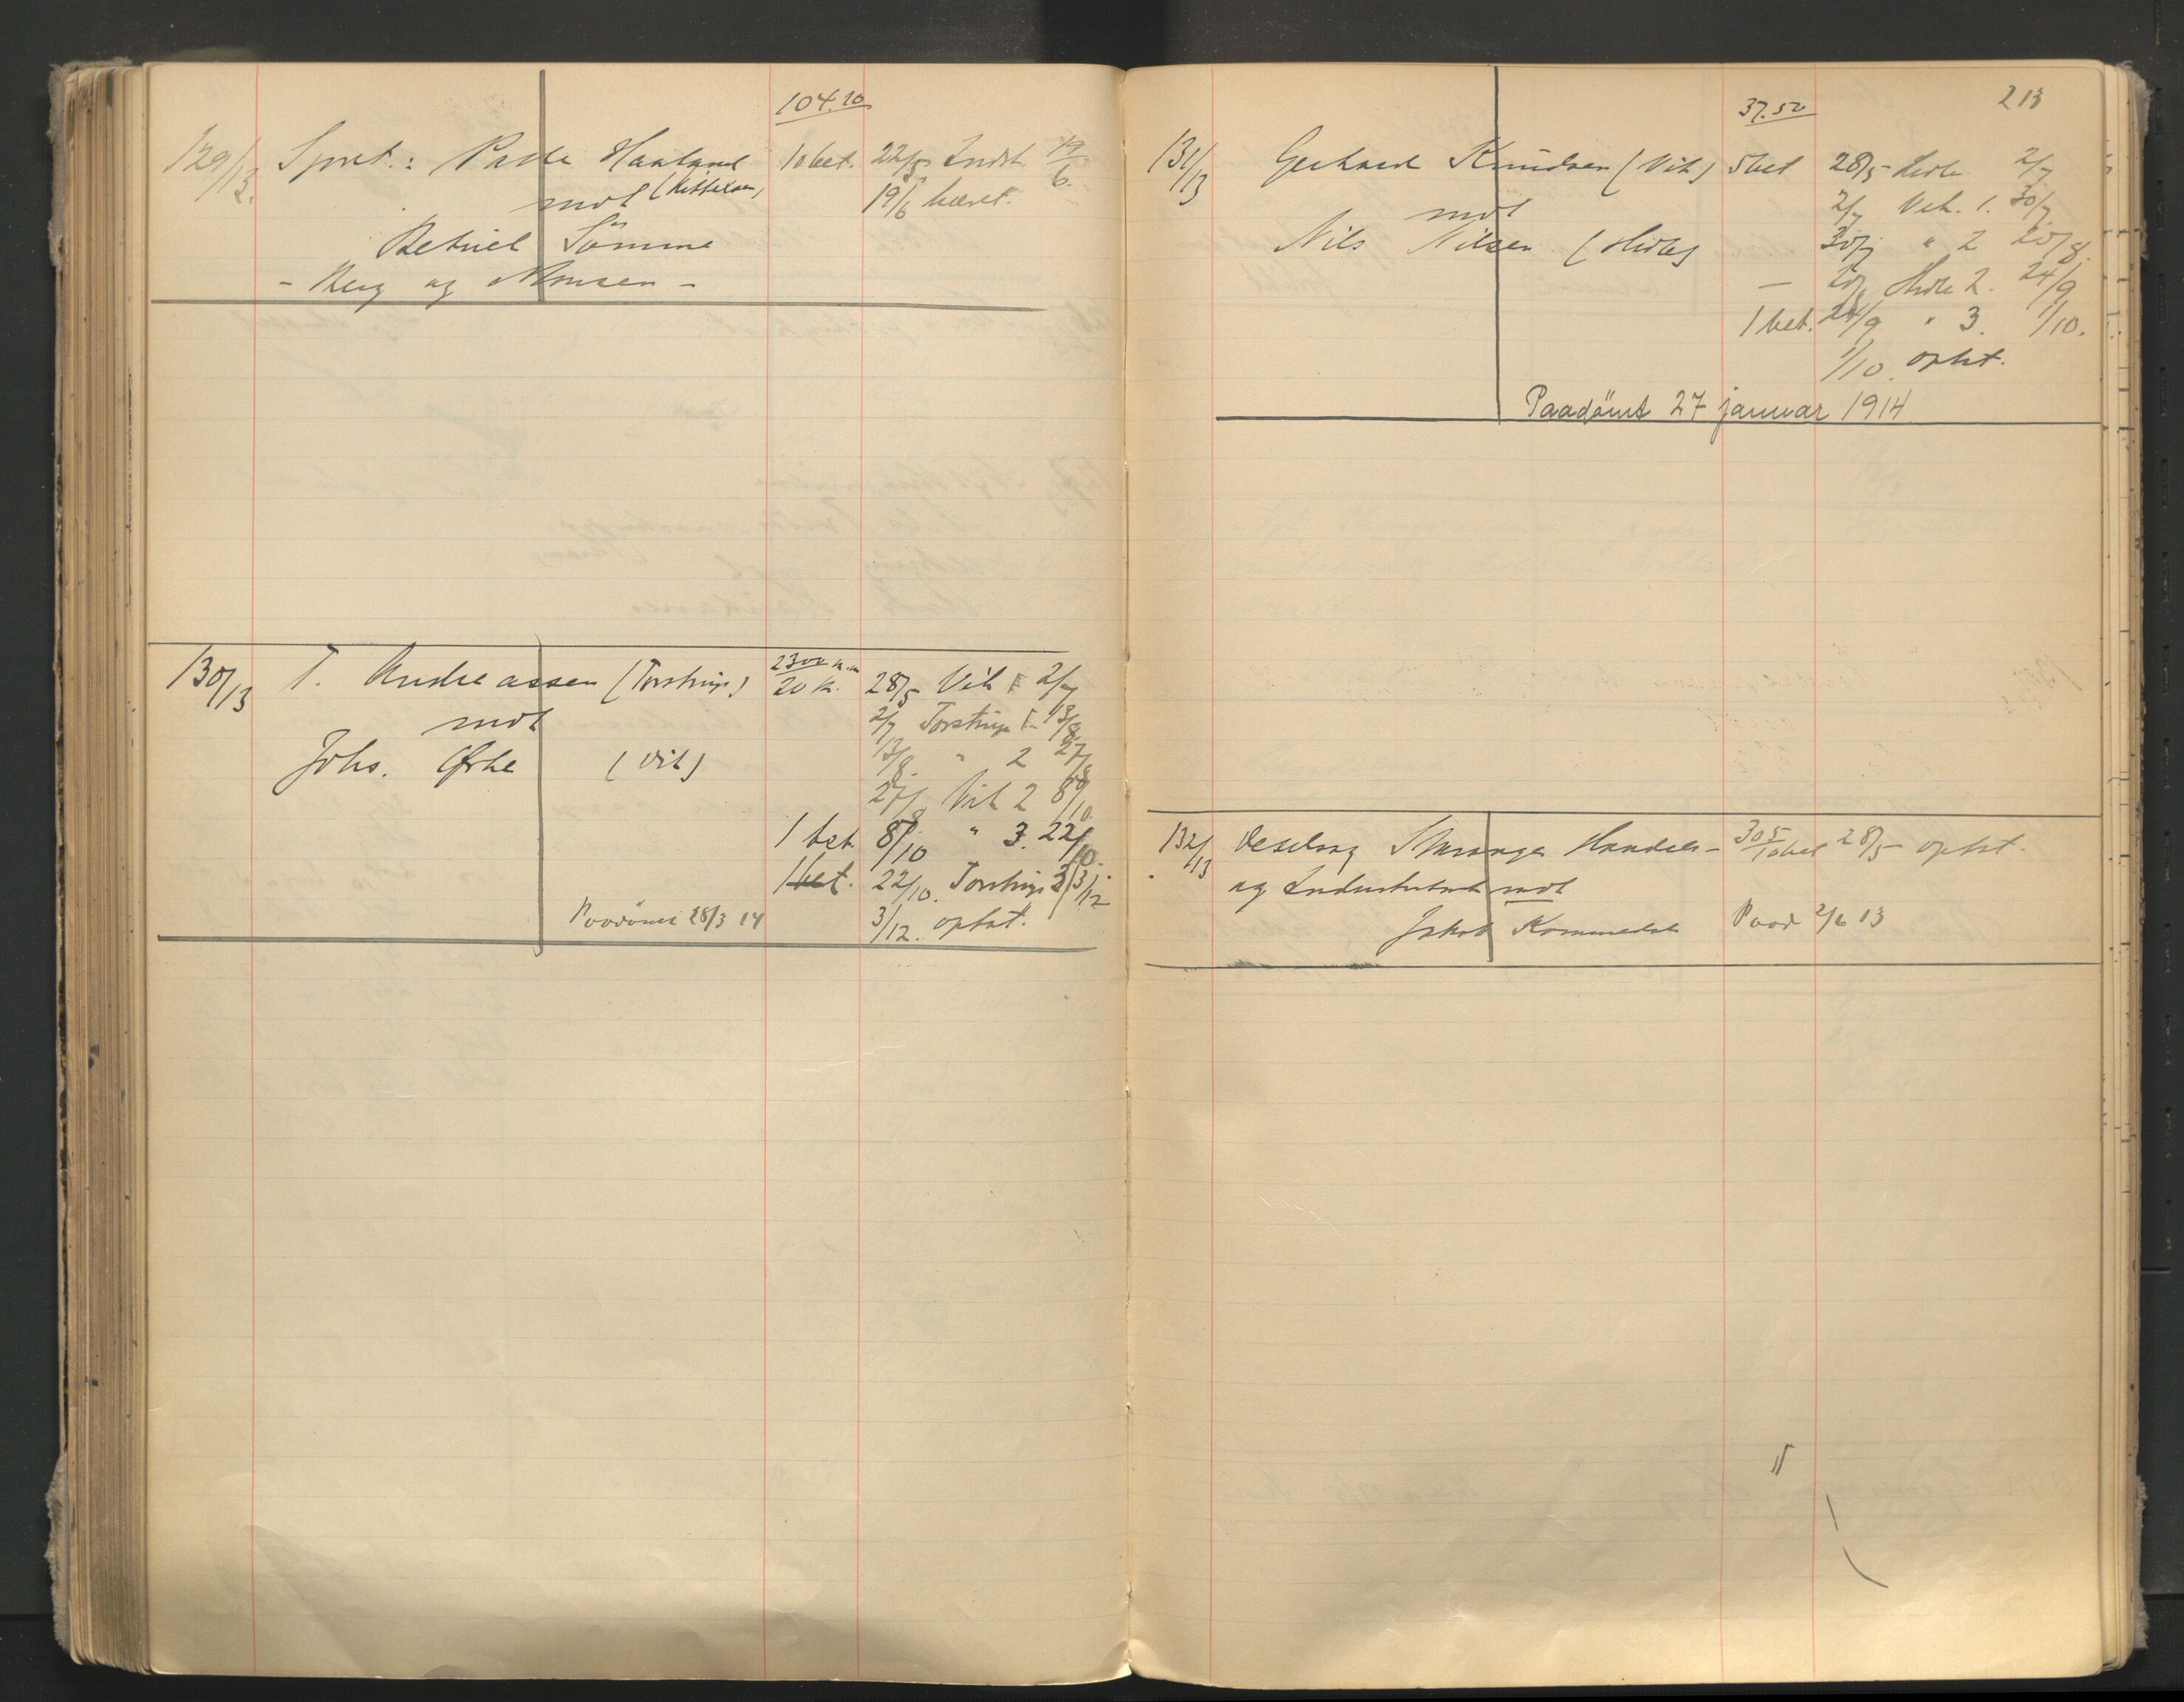 104.10
129/13. Sjøret.: Paste Haaland 10 bet. 22/5 Indst. 19/6.
mot (Kittelsen) 19/6 hævet.
Betuel Sömme
- Berg og Monsen -
130/13 T. Andreassen (Torstrup) 2300 kr. 20 kr. 28/5 Vit 1 2/7
mot 2/7 Torstrup 1 13/8.
13/8. " 2 27/8
Johs. Ørke (Vit)
27/8 Vit 2 8/10.
1 bet. 8/10 " 3. 22/10.
1 bet. 22/10. Torstrup 3 3/12
Paadömt 28/3 14 3/12. optat.
213
37.50
131/13 Gerhard Knudsen (Vit) 5 bet 28/5 Hirte 2/7
mot 2/7 Vit. 1. 30/7.
Nils Nilsen (Hirte) 30/7 " 2 20/8.
— 20/8 Hirte 2. 24/9
1 bet. 24/9 " 3. 1/10.
1/10. optat.
Paadömt 27 januar 1914
132/13 Stavanger Handels- 305 10 bet 28/5 optat.
og Industribank mot
Jakob Kommedal Paad 2/6 13